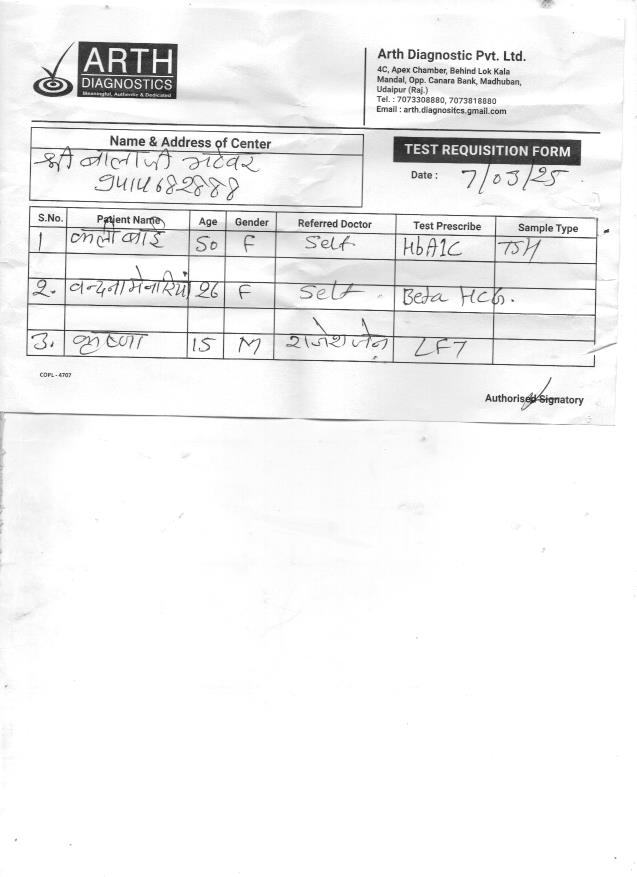 ARTH
DIAGNOSTICS
Meaningful, Authentic & Dedicated
Arth Diagnostic Pvt. Ltd.
4C, Apex Chamber, Behind Lok Kala
Mandal, Opp. Canara Bank, Madhuban,
Udaipur (Raj.)
Tel. : 7073308880, 7073818880
Email : arth.diagnositcs.gmail.com
Name & Address of Center
श्री बालाजी भटेवर
9414682888
TEST REQUISITION FORM
Date : 7/03/25
S.No. Patient Name Age Gender Referred Doctor Test Prescribe Sample Type
1 50 F Self HbA1C TSH
2. वन्दना मेनारिया 26 F Self. Beta HCG.
3. कृष्णा 15 M राजेश जैन LFT
COPL - 4707
Authorised Signatory